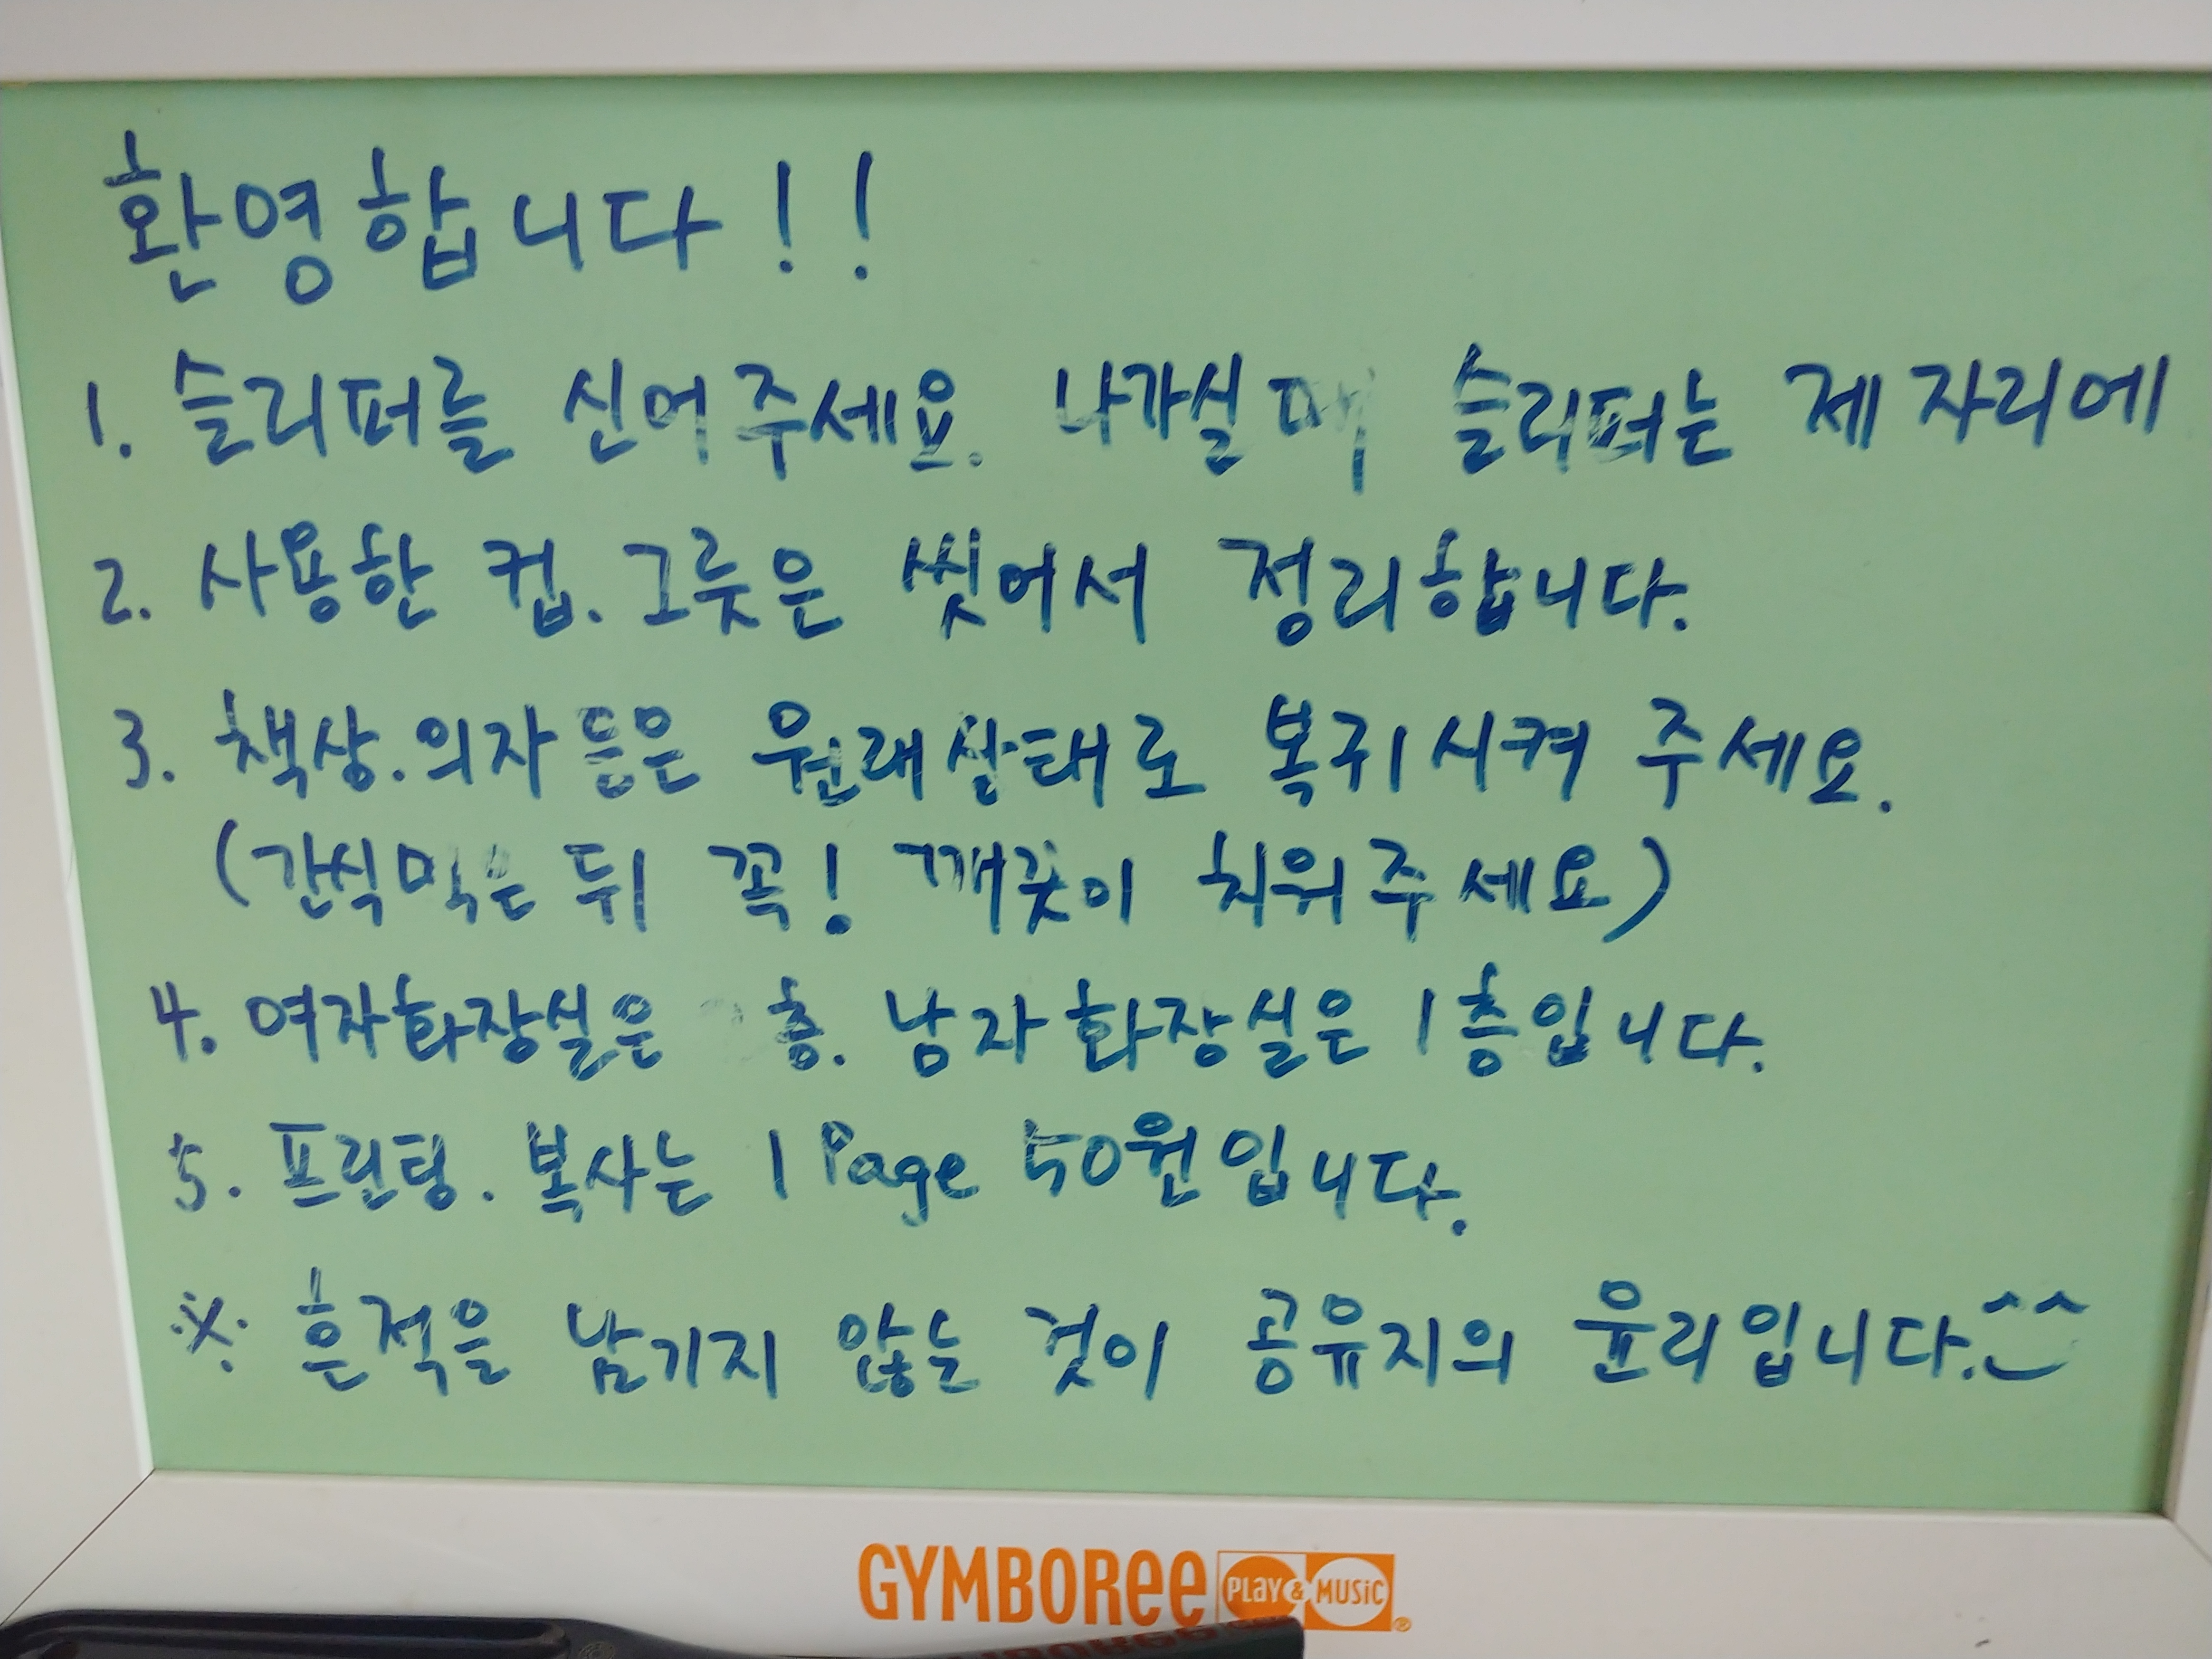 환영합니다!!
1. 슬리퍼를 신어주세요. 나가실 때 슬리퍼는 제자리에
2. 사용한 컵. 그릇은 씻어서 정리합니다.
3. 책상.의자 등은 원래상태로 복귀시켜 주세요.
(간식먹은 뒤 꼭! 깨끗이 치워주세요)
4. 여자화장실은 층. 남자화장실은 1층입니다.
5. 프린팅. 복사는 1 Page 50원입니다.
※ 흔적을 남기지 않는 것이 공유지의 윤리입니다.^^
GYMBOREE PLAY & MUSIC